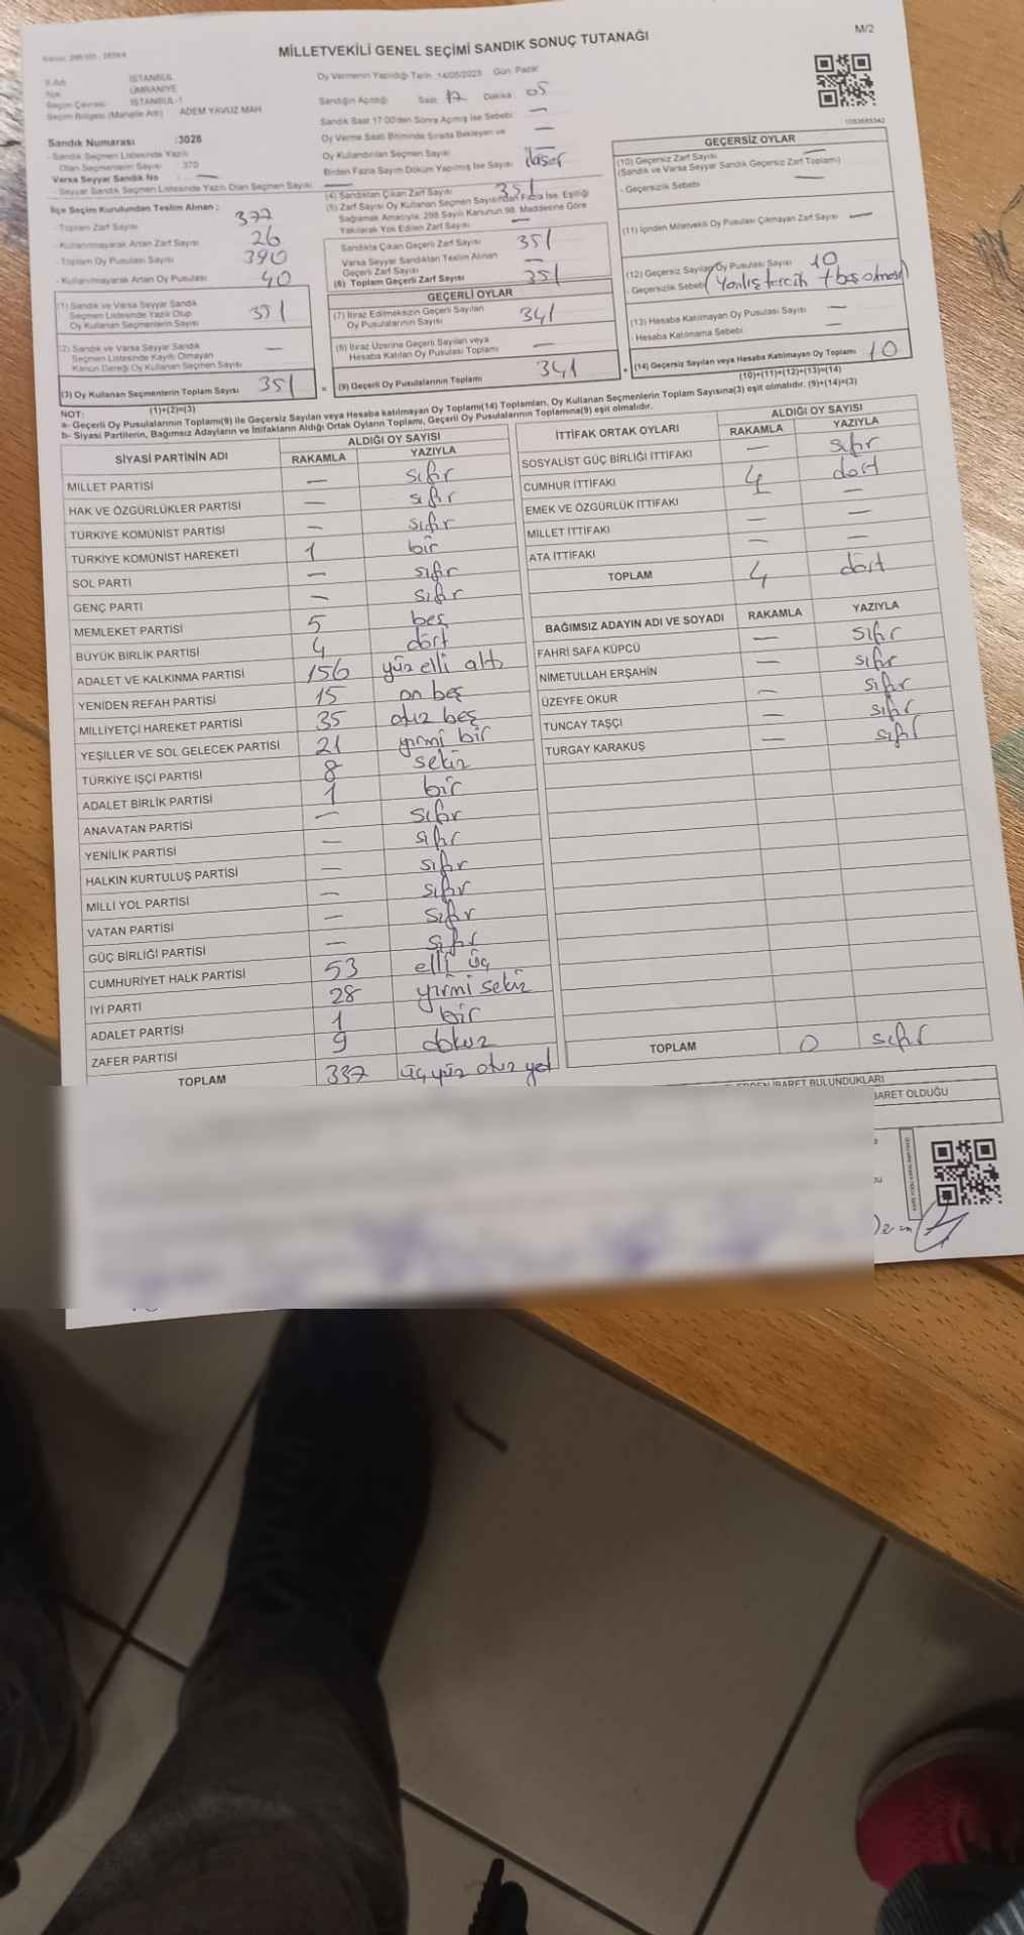 MİLLETVEKİLİ GENEL SEÇİMİ SANDIK SONUÇ TUTANAĞI
M/2
İSTANBUL
ÜMRANİYE
Seçim Çevresi İSTANBUL-1
Seçim Bölgesi (Mahalle Adı) ADEM YAVUZ MAH
Sandık Numarası :3028
- Sandık Seçmen Listesinde Yazılı
Olan Seçmenlerin Sayısı : 370
Varsa Seyyar Sandık No : —
- Seyyar Sandık Seçmen Listesinde Yazılı Olan Seçmen Sayısı: —
İlçe Seçim Kurulundan Teslim Alınan :
- Toplam Zarf Sayısı 377
- Kullanılmayarak Artan Zarf Sayısı 26
- Toplam Oy Pusulası Sayısı 390
- Kullanılmayarak Artan Oy Pusulası 40
(1) Sandık ve Varsa Seyyar Sandık
Seçmen Listesinde Yazılı Olup
Oy Kullanan Seçmenlerin Sayısı 351
(2) Sandık ve Varsa Seyyar Sandık
Seçmen Listesinde Kayıtlı Olmayan
Kanun Gereği Oy Kullanan Seçmen Sayısı —
(3) Oy Kullanan Seçmenlerin Toplam Sayısı 351
(1)+(2)=(3)
Oy Vermenin Yapıldığı Tarih :14/05/2023 Gün: Pazar
Sandığın Açıldığı Saat 17 Dakika : 05
Sandık Saat 17:00'den Sonra Açılmış İse Sebebi: —
Oy Verme Saati Bitiminde Sırada Bekleyen ve
Oy Kullandırılan Seçmen Sayısı —
Birden Fazla Sayım Döküm Yapılmış İse Sayısı
(4) Sandıktan Çıkan Zarf Sayısı 351
(5) Zarf Sayısı Oy Kullanan Seçmen Sayısından Fazla İse, Eşitliği
Sağlamak Amacıyla, 298 Sayılı Kanunun 98. Maddesine Göre
Yakılarak Yok Edilen Zarf Sayısı —
Sandıkta Çıkan Geçerli Zarf Sayısı 351
Varsa Seyyar Sandıktan Teslim Alınan
Geçerli Zarf Sayısı —
(6) Toplam Geçerli Zarf Sayısı 351
GEÇERLİ OYLAR
(7) İtiraz Edilmeksizin Geçerli Sayılan
Oy Pusulalarının Sayısı 341
(8) İtiraz Üzerine Geçerli Sayılan veya
Hesaba Katılan Oy Pusulası Toplamı —
= (9) Geçerli Oy Pusulalarının Toplamı 341
GEÇERSİZ OYLAR
(10) Geçersiz Zarf Sayısı —
(Sandık ve Varsa Seyyar Sandık Geçersiz Zarf Toplamı)
- Geçersizlik Sebebi —
(11) İçinden Milletvekili Oy Pusulası Çıkmayan Zarf Sayısı —
(12) Geçersiz Sayılan Oy Pusulası Sayısı 10
- Geçersizlik Sebebi (Yanlış tercih + boş olması)
(13) Hesaba Katılmayan Oy Pusulası Sayısı —
- Hesaba Katılmama Sebebi —
+ (14) Geçersiz Sayılan veya Hesaba Katılmayan Oy Toplamı 10
(10)+(11)+(12)+(13)=(14)
NOT:
a- Geçerli Oy Pusulalarının Toplamı(9) ile Geçersiz Sayılan veya Hesaba katılmayan Oy Toplamı(14) Toplamları, Oy Kullanan Seçmenlerin Toplam Sayısına(3) eşit olmalıdır. (9)+(14)=(3)
b- Siyasi Partilerin, Bağımsız Adayların ve İttifakların Aldığı Ortak Oyların Toplamı, Geçerli Oy Pusulalarının Toplamına(9) eşit olmalıdır.
SİYASİ PARTİNİN ADI ALDIĞI OY SAYISI
RAKAMLA YAZIYLA
MİLLET PARTİSİ — sıfır
HAK VE ÖZGÜRLÜKLER PARTİSİ — sıfır
TÜRKİYE KOMÜNİST PARTİSİ — sıfır
TÜRKİYE KOMÜNİST HAREKETİ 1 bir
SOL PARTİ — sıfır
GENÇ PARTİ — sıfır
MEMLEKET PARTİSİ 5 beş
BÜYÜK BİRLİK PARTİSİ 4 dört
ADALET VE KALKINMA PARTİSİ 156 yüz elli altı
YENİDEN REFAH PARTİSİ 15 on beş
MİLLİYETÇİ HAREKET PARTİSİ 35 otuz beş
YEŞİLLER VE SOL GELECEK PARTİSİ 21 yirmi bir
TÜRKİYE İŞÇİ PARTİSİ 8 sekiz
ADALET BİRLİK PARTİSİ 1 bir
ANAVATAN PARTİSİ — sıfır
YENİLİK PARTİSİ — sıfır
HALKIN KURTULUŞ PARTİSİ — sıfır
MİLLİ YOL PARTİSİ — sıfır
VATAN PARTİSİ — sıfır
GÜÇ BİRLİĞİ PARTİSİ — sıfır
CUMHURİYET HALK PARTİSİ 53 elli üç
İYİ PARTİ 28 yirmi sekiz
ADALET PARTİSİ 1 bir
ZAFER PARTİSİ 9 dokuz
TOPLAM 337 üçyüz otuz yedi
İTTİFAK ORTAK OYLARI ALDIĞI OY SAYISI
RAKAMLA YAZIYLA
SOSYALİST GÜÇ BİRLİĞİ İTTİFAKI — sıfır
CUMHUR İTTİFAKI 4 dört
EMEK VE ÖZGÜRLÜK İTTİFAKI — —
MİLLET İTTİFAKI — —
ATA İTTİFAKI — —
TOPLAM 4 dört
BAĞIMSIZ ADAYIN ADI VE SOYADI RAKAMLA YAZIYLA
FAHRİ SAFA KÜPCÜ — sıfır
NİMETULLAH ERŞAHİN — sıfır
ÜZEYFE OKUR — sıfır
TUNCAY TAŞÇI — sıfır
TURGAY KARAKUŞ — sıfır
TOPLAM 0 sıfır
İBARET BULUNDUKLARI
BARET OLDUĞU